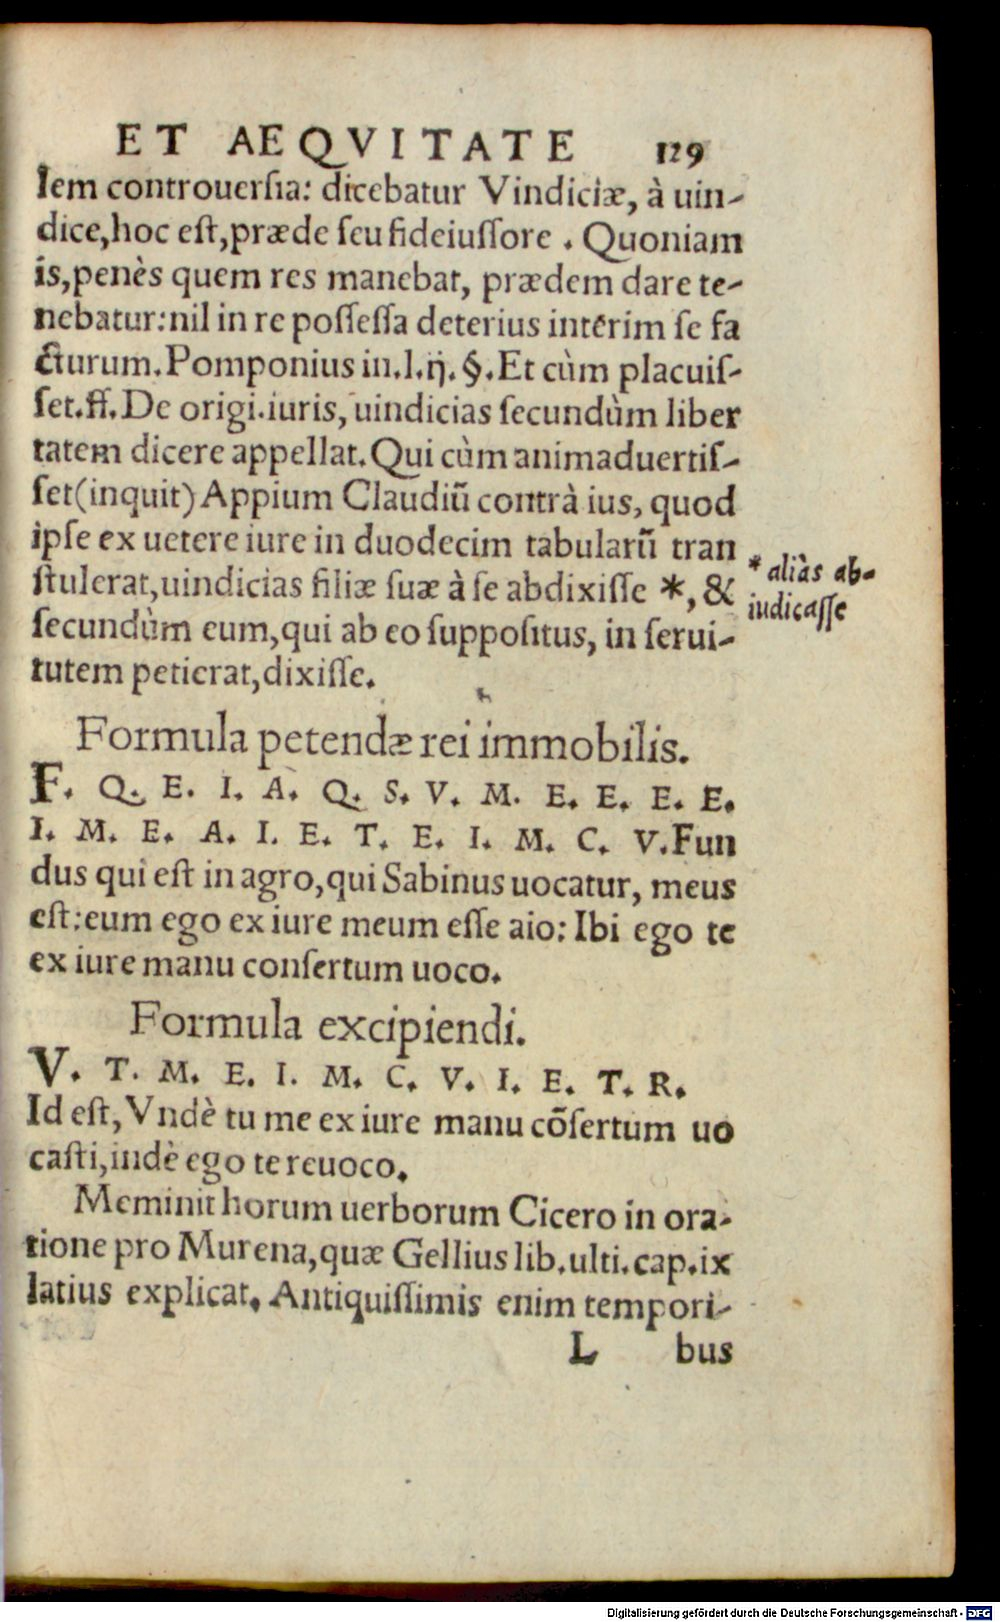 ET AEQVITATE 129
lem controuersia: dicebatur Vindiciæ, à uin-
dice, hoc est, præde seu fideiussore. Quoniam
is, penès quem res manebat, prædem dare te-
nebatur: nil in re possessa deterius interim se fa
cturum. Pomponius in.l.ij.§.Et cùm placuis-
set.ff.De origi.iuris, uindicias secundùm liber
tatem dicere appellat. Qui cùm animaduertis-
set (inquit) Appium Claudiū contrà ius, quod
ipse ex uetere iure in duodecim tabularū tran
stulerat, uindicias filiæ suæ à se abdixisse *, &
* aliàs ab-
iudicasse
secundùm eum, qui ab eo suppositus, in serui-
tutem petierat, dixisse.
Formula petendæ rei immobilis.
F. Q. E. I. A. Q. S. V. M. E. E. E. E.
I. M. E. A. I. E. T. E. I. M. C. V. Fun
dus qui est in agro, qui Sabinus uocatur, meus
est: eum ego ex iure meum esse aio: Ibi ego te
ex iure manu consertum uoco.
Formula excipiendi.
V. T. M. E. I. M. C. V. I. E. T. R.
Id est, Vndè tu me ex iure manu cōsertum uo
casti, indè ego te reuoco.
Meminit horum uerborum Cicero in ora-
tione pro Murena, quæ Gellius lib.ulti.cap.ix
latius explicat. Antiquissimis enim tempori-
L bus
Digitalisierung gefördert durch die Deutsche Forschungsgemeinschaft - DFG